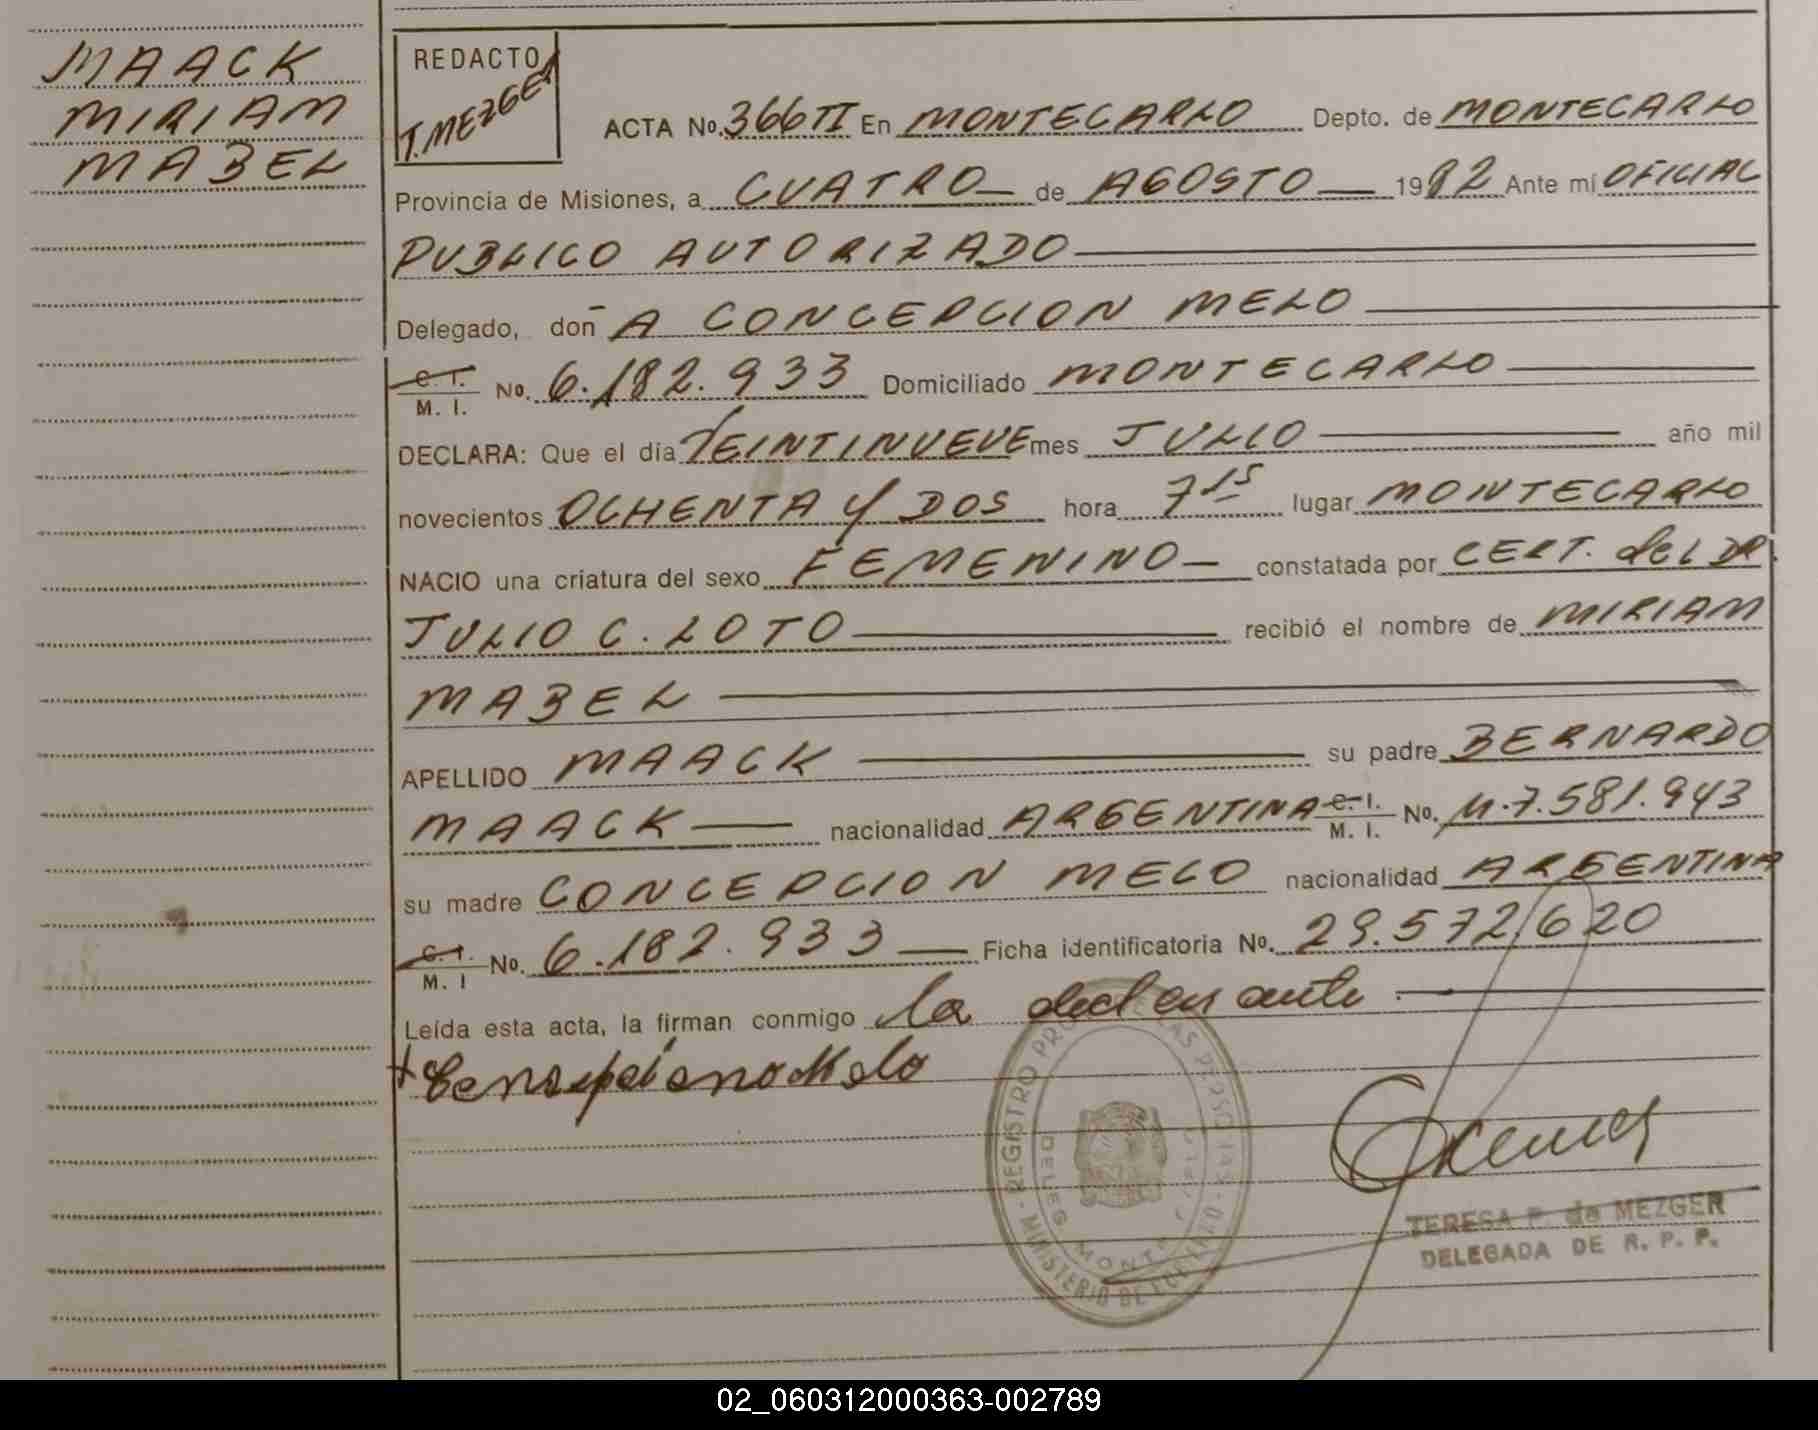 MAACK
MIRIAM
MABEL
REDACTO
T. MEZGER
ACTA No. 366 TI En MONTECARLO Depto. de MONTECARLO
Provincia de Misiones, a CUATRO de AGOSTO 1982 Ante mí OFICIAL
PUBLICO AUTORIZADO
Delegado, don A CONCEPCION MELO
C. I. M. I. No. 6.182.933 Domiciliado MONTECARLO
DECLARA: Que el día VEINTINUEVE mes JULIO año mil
novecientos OCHENTA Y DOS hora 7 15 lugar MONTECARLO
NACIO una criatura del sexo FEMENINO constatada por CERT. del DR.
JULIO C. LOTO recibió el nombre de MIRIAM
MABEL
APELLIDO MAACK su padre BERNARDO
MAACK nacionalidad ARGENTINA C. I. M. I. No. M.7.581.943
su madre CONCEPCION MELO nacionalidad ARGENTINA
C. I. M. I No. 6.182.933 Ficha identificatoria No. 29.572/620
Leída esta acta, la firman conmigo la declarante
REGISTRO DE LAS PERSONAS
MINISTERIO DE
DELEG MONTE
TERESA P. de MEZGER
DELEGADA DE R. P. P.
02_060312000363-002789